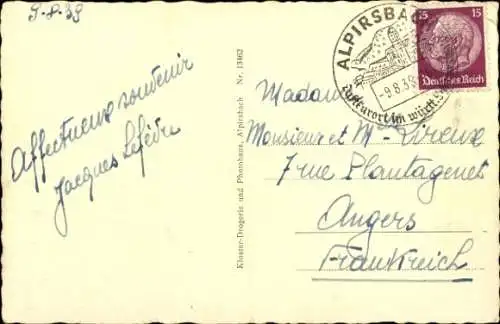 9-8-39
Affectueux souvenir
Jacques
Kloster-Drogerie und Photohaus, Alpirsbach Nr. 13462
ALPIRSBACH
-9.8.39
Luftkurort im württ.
15 15
Deutsches Reich
Madame
Monsieur et Me
7 rue Plantagenet
Angers
Frankreich